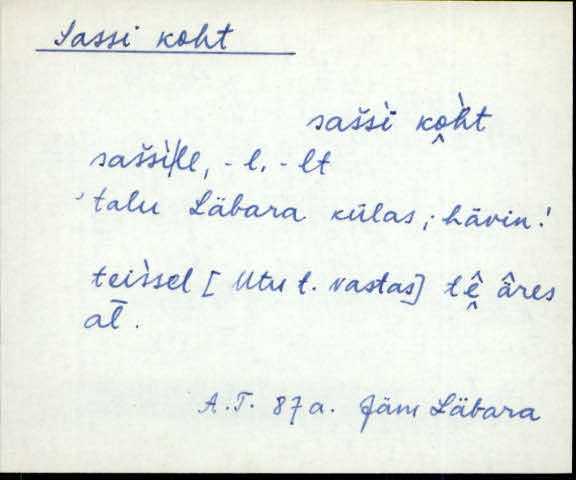 Sassi koht
sašsì ko̭h̀t
sašsì|le, -l, -lt
'talu Läbara külas; hävin!
teìssel [Utu t. vastas] tḙ̂ âres
at̄.
A.T. 87a. Jäm Läbara